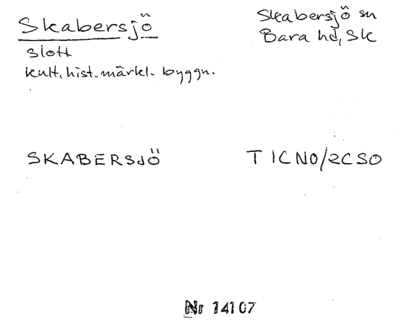 Skabersjö
slott
kult.hist. märkl. byggn.
Skabersjö sn
Bara hd, Sk
SKABERSJÖ
T ICNO/2CSO
Nr 14107